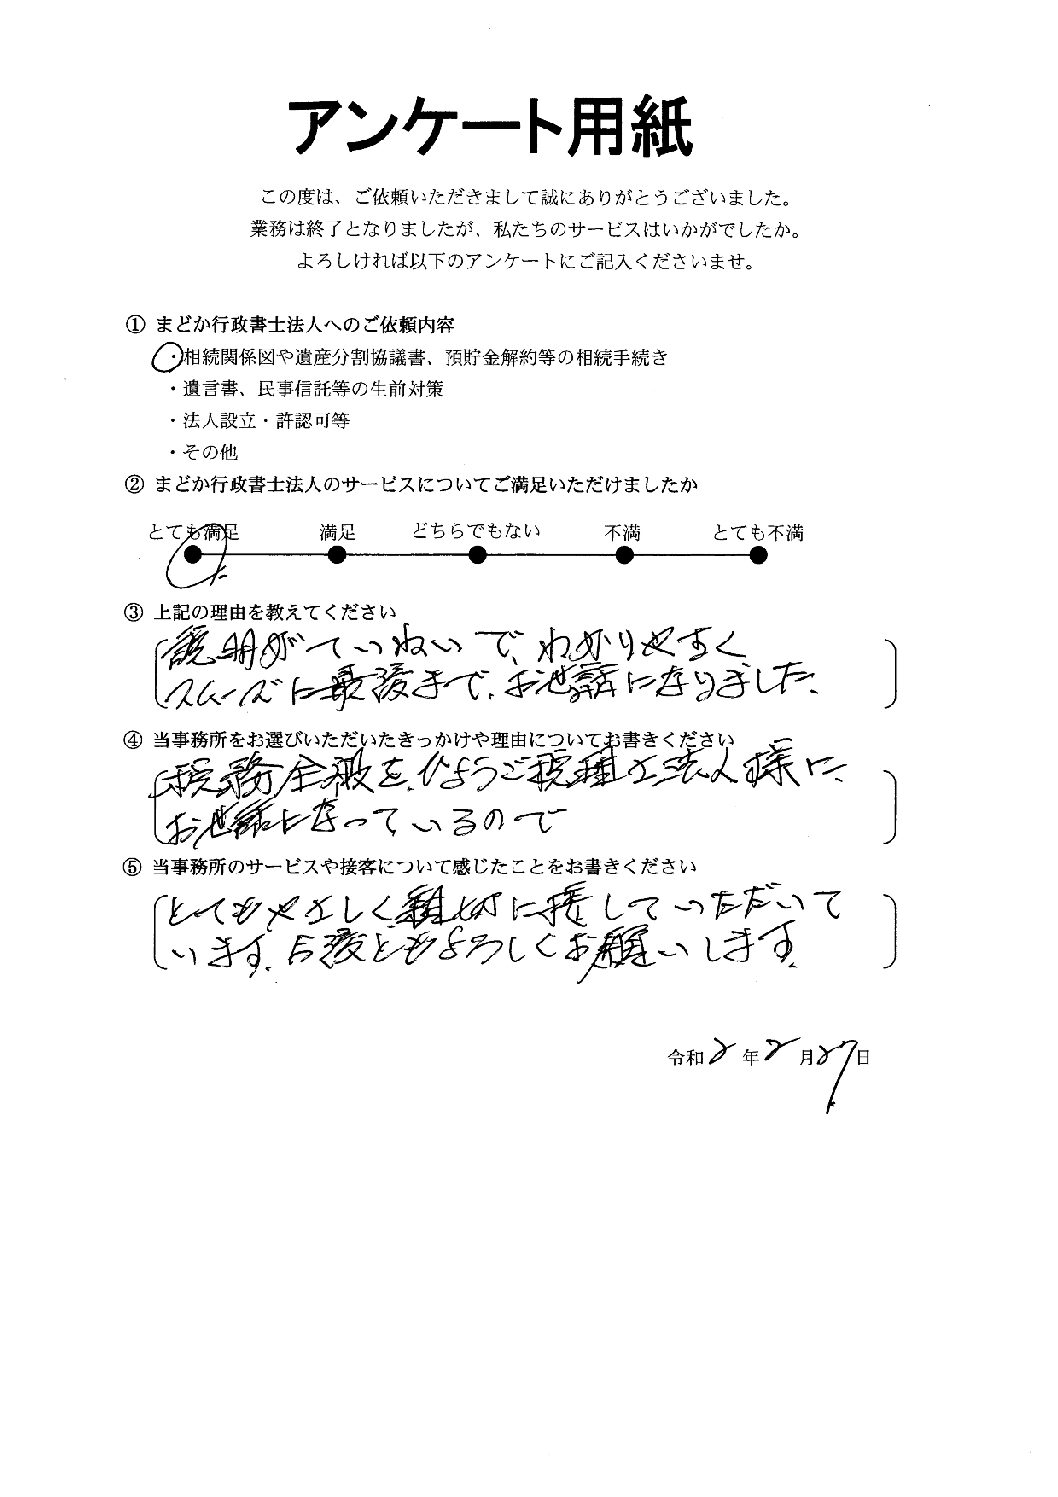 アンケート用紙
この度は、ご依頼いただきまして誠にありがとうございました。
業務は終了となりましたが、私たちのサービスはいかがでしたか。
よろしければ以下のアンケートにご記入くださいませ。
① まどか行政書士法人へのご依頼内容
・相続関係図や遺産分割協議書、預貯金解約等の相続手続き
・遺言書、民事信託等の生前対策
・法人設立・許認可等
・その他
② まどか行政書士法人のサービスについてご満足いただけましたか
とても満足 満足 どちらでもない 不満 とても不満
③ 上記の理由を教えてください
説明がていねいで、わかりやすく
スムーズに最後まで、お世話になりました、
④ 当事務所をお選びいただいたきっかけや理由についてお書きください
税務全般を、ひょうご税理士法人様に、
お世話になっているので
⑤ 当事務所のサービスや接客について感じたことをお書きください
とてもやさしく親切に接していただいて
います、今後ともよろしくお願いします、
令和2年2月27日